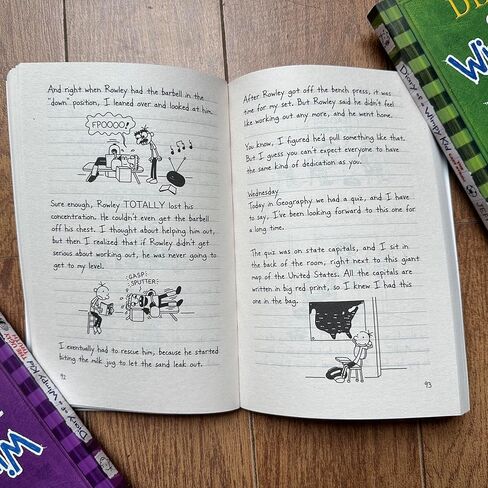 And right when Rowley had the barbell in the
"down" position, I leaned over and looked at him.
FPOOOO!
Sure enough, Rowley TOTALLY lost his
concentration. He couldn't even get the barbell
off his chest. I thought about helping him out,
but then I realized that if Rowley didn't get
serious about working out, he was never going to
get to my level.
GASP
SPUTTER
I eventually had to rescue him, because he started
biting the milk jug to let the sand leak out.
92
After Rowley got off the bench press, it was
time for my set. But Rowley said he didn't feel
like working out any more, and he went home.
You know, I figured he'd pull something like that.
But I guess you can't expect everyone to have
the same kind of dedication as you.
Wednesday
Today in Geography we had a quiz, and I have
to say, I've been looking forward to this one for
a long time.
The quiz was on state capitals, and I sit in
the back of the room, right next to this giant
map of the United States. All the capitals are
written in big red print, so I knew I had this
one in the bag.
93
Diary of a Wimpy Kid
Diary of a Wimpy Kid